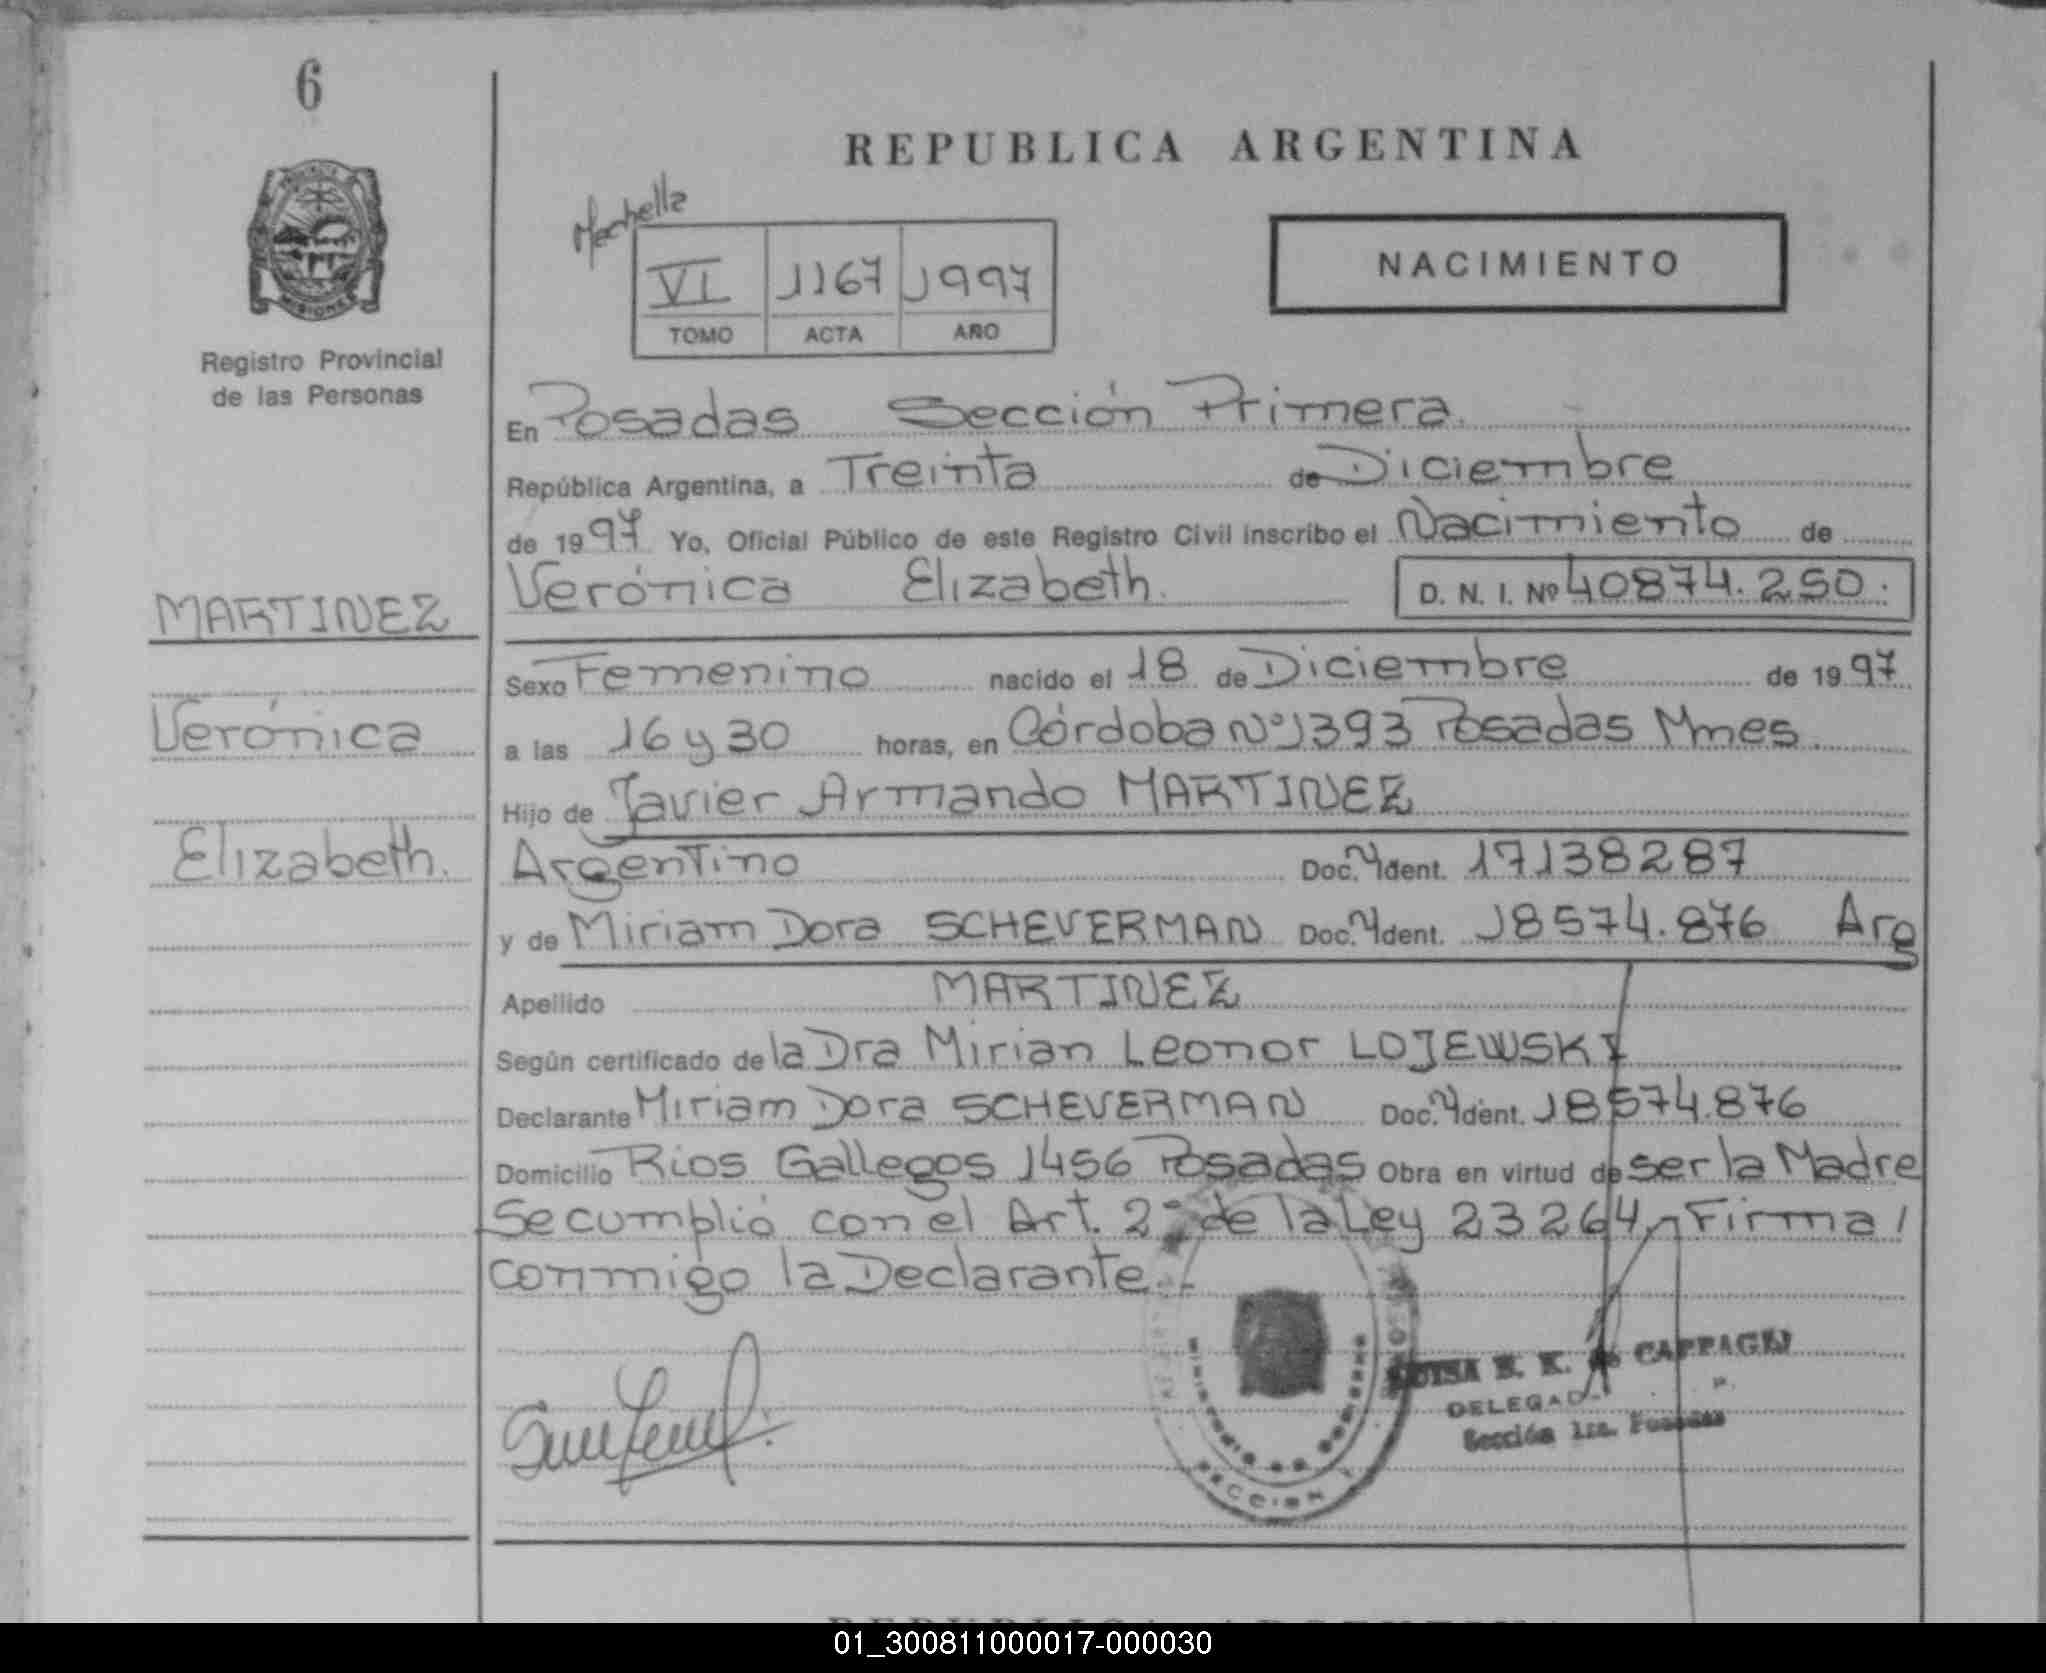 6
REPUBLICA ARGENTINA
NACIMIENTO
VI 1167 1997
TOMO ACTA AÑO
MISIONES
Registro Provincial
de las Personas
En Posadas Sección Primera.
República Argentina, a Treinta de Diciembre
de 1997 Yo, Oficial Público de este Registro Civil inscribo el Nacimiento de
Verónica Elizabeth. D. N. I. Nº 40874.250.
MARTINEZ
Verónica
Elizabeth.
Sexo Femenino nacido el 18 de Diciembre de 1997
a las 16 y 30 horas, en Córdoba Nº 1393 Posadas Mnes.
Hijo de Javier Armando MARTINEZ
Argentino Doc. Ydent. 17138287
y de Miriam Dora SCHEVERMAN Doc. Ydent. 18574.876 Arg
Apellido MARTINEZ
Según certificado de la Dra Mirian Leonor LOJEWSKI
Declarante Miriam Dora SCHEVERMAN Doc. Ydent. 18574.876
Domicilio Rios Gallegos 1456 Posadas Obra en virtud de ser la Madre
Se cumplió con el Art. 2º de la Ley 23264 Firma
conmigo la Declarante.-
SECCION
LUISA E. K. de
DELEGADA
Sección 1ra. Posadas
REPUBLICA ARGENTINA
01_300811000017-000030